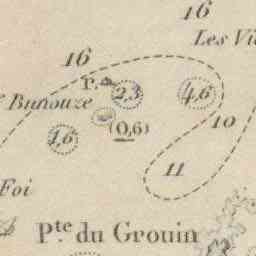 16
Les
16
r.
2,3
4,6
Bunouze
10
1,6
(0,6)
11
Foi
Pte du Grouin